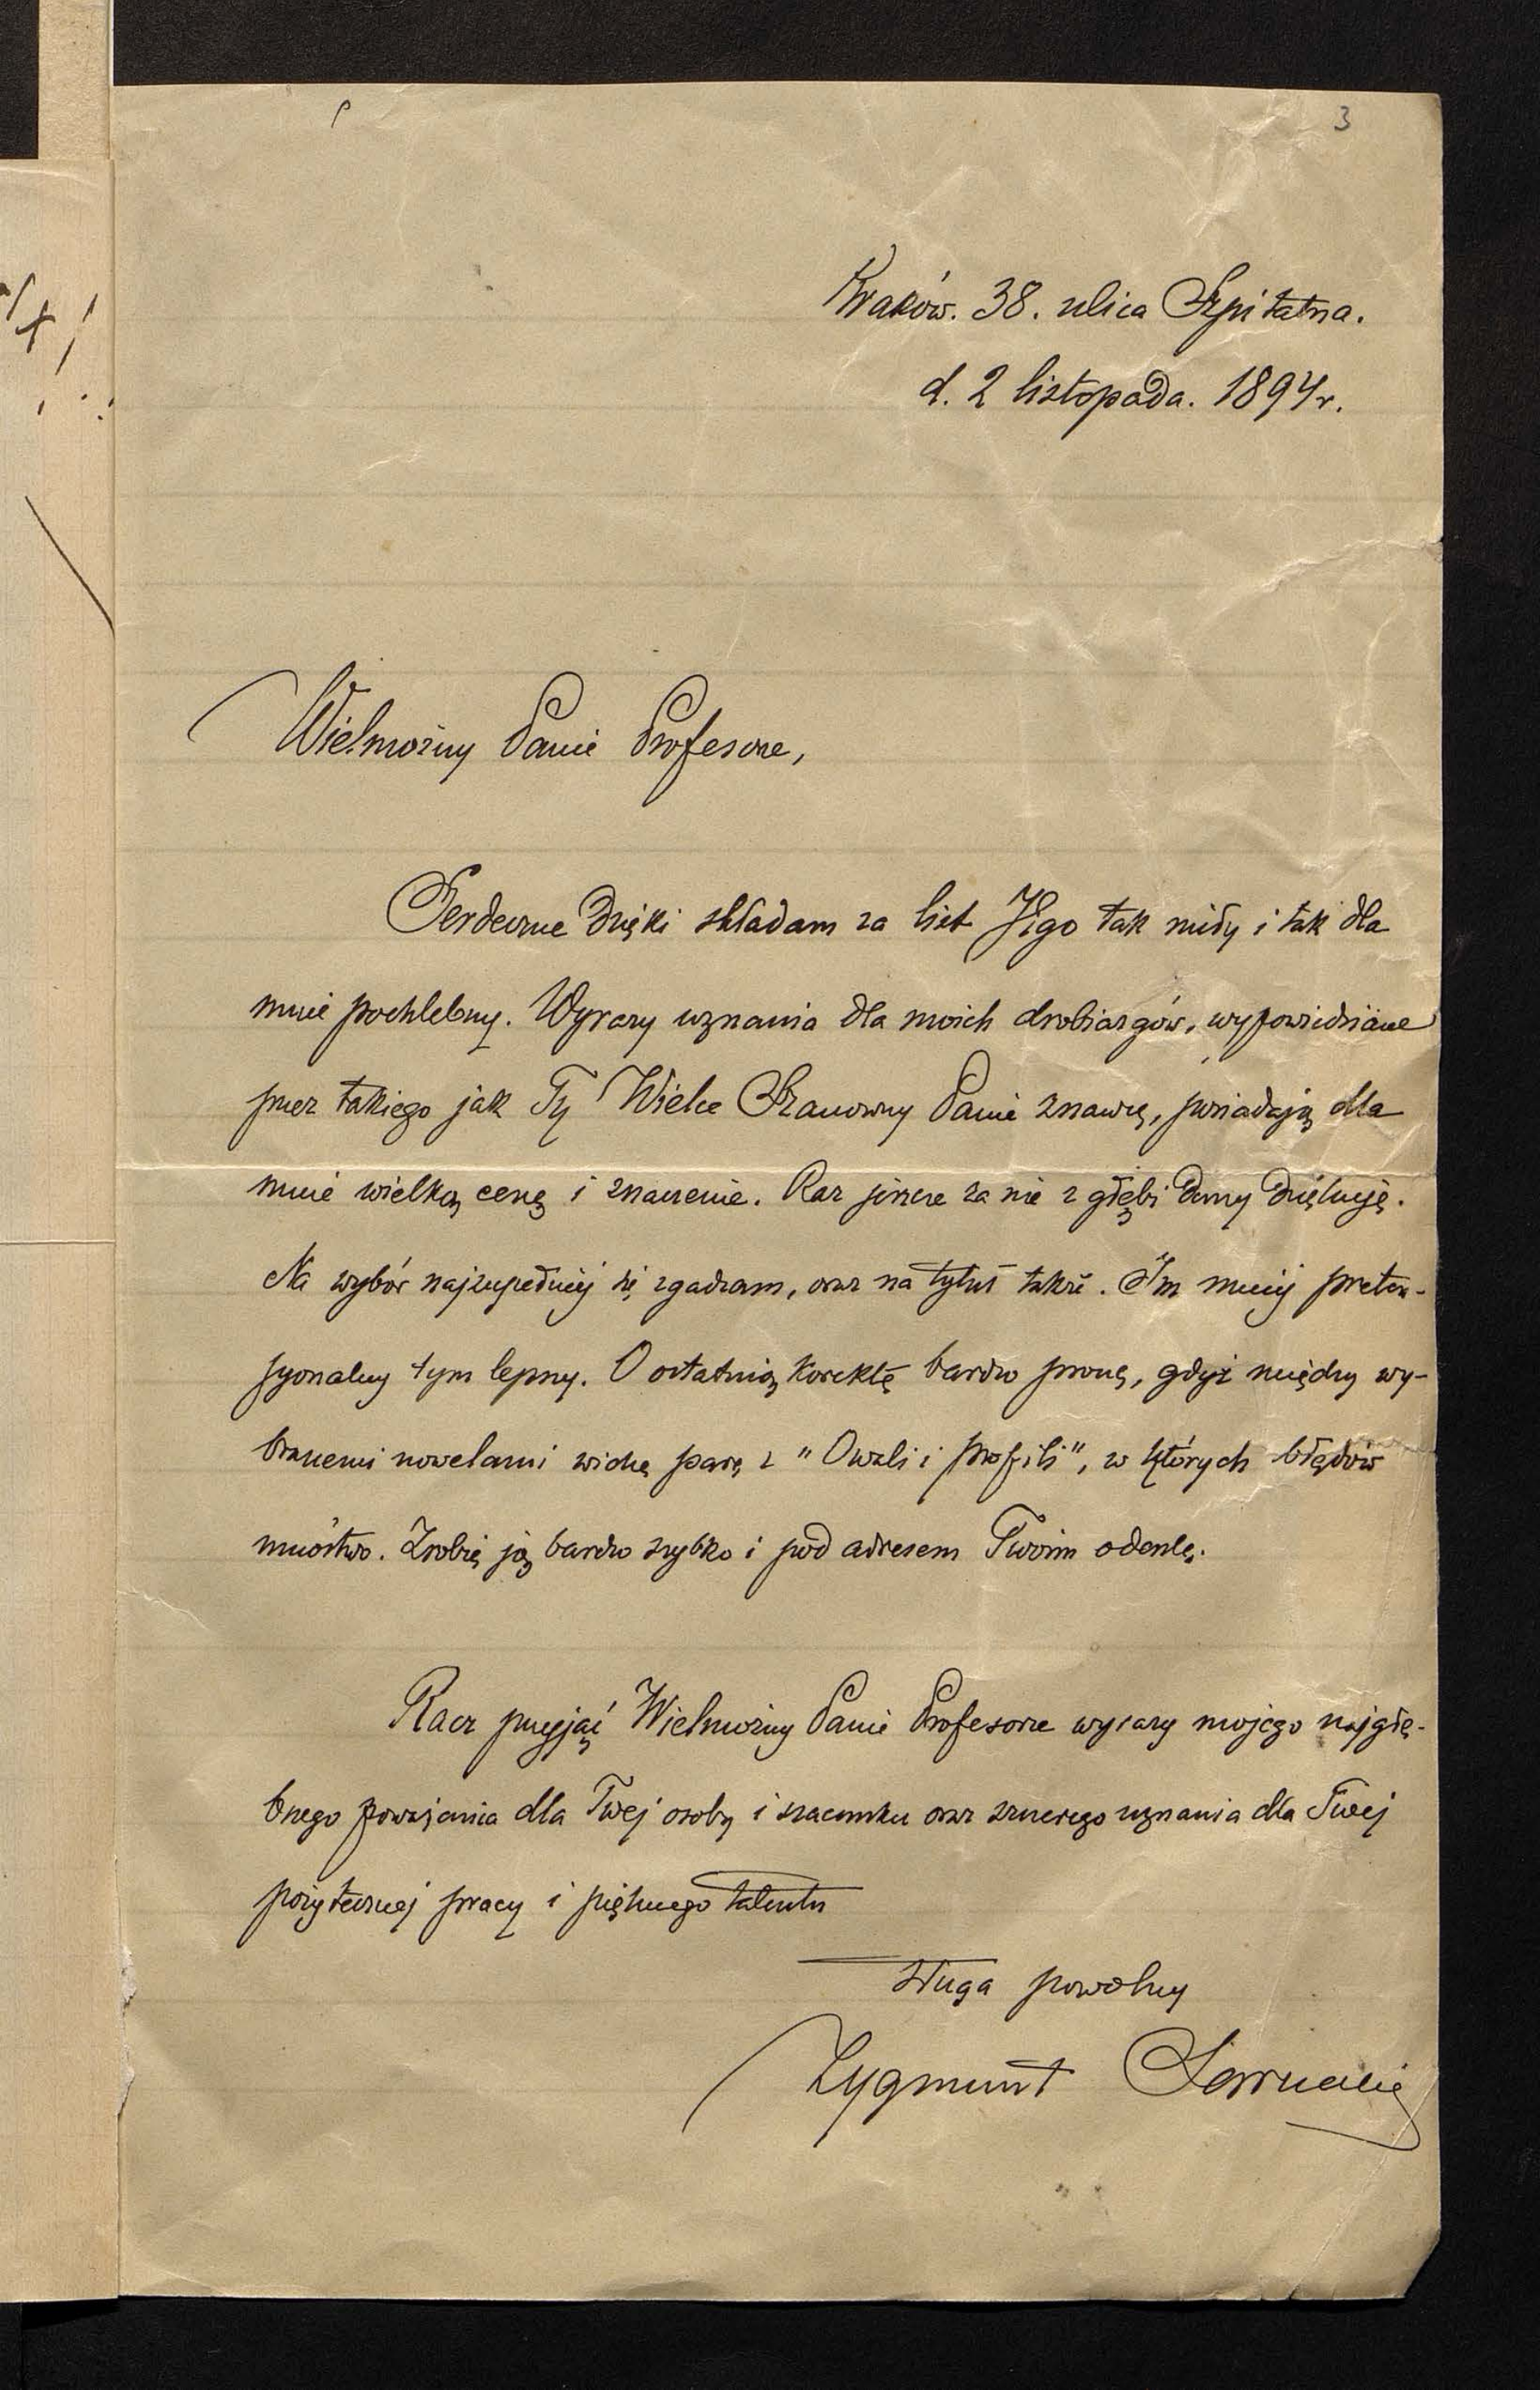 3
Kraków. 38. ulica Szpitalna.
d. 2 listopada. 1894r.
Wielmożny Panie Profesorze,
Serdeczne dzięki składam za list Jego tak miły i tak dla
mnie pochlebny. Wyrazy uznania dla moich drobiazgów, wypowiedziane
przez takiego jak Ty Wielce Szanowny Panie znawcę, posiadają dla
mnie wielką cenę i znaczenie. Raz jeszcze za nie z głębi duszy dziękuję.
Na wybór najzupełniej się zgadzam, oraz na tytuł także. Im mniej preten-
syonalny tym lepszy. O ostatnią korektę bardzo proszę, gdyż między wy-
branemi nowelami widzę parę z "Owali i profili", w których błędów
mnóstwo. Zrobię ją bardzo szybko i pod adresem Twoim odeszlę.
Racz przyjąć Wielmożny Panie Profesorze wyrazy mojego najgłę-
bszego poważania dla Twej osoby i szacunku oraz szczerego uznania dla Twej
pożytecznej pracy i pięknego talentu
sługa powolny
Zygmunt Sarnecki